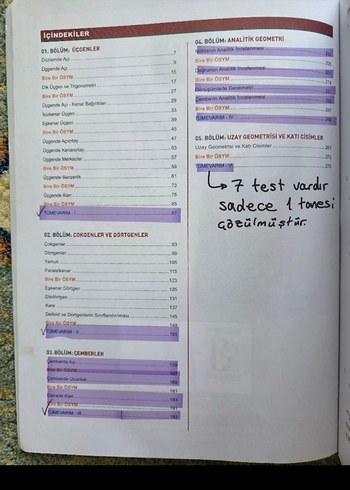 İÇİNDEKİLER
01. BÖLÜM: ÜÇGENLER
Düzlemde Açı 7
Üçgende Açı 9
Bire Bir ÖSYM 15
Dik Üçgen ve Trigonometri 17
Bire Bir ÖSYM 27
Üçgende Açı - Kenar Bağıntıları 29
İkizkenar Üçgen 33
Eşkenar Üçgen 39
Bire Bir ÖSYM 45
Üçgende Açıortay 47
Üçgende Kenarortay 53
Üçgende Merkezler 57
Bire Bir ÖSYM 59
Üçgende Benzerlik 61
Bire Bir ÖSYM 73
Üçgende Alan 75
Bire Bir ÖSYM 85
TÜMEVARIM - I 87
02. BÖLÜM: ÇOKGENLER VE DÖRTGENLER
Çokgenler 93
Dörtgenler 99
Yamuk 105
Paralelkenar 113
Bire Bir ÖSYM 123
Eşkenar Dörtgen 125
Dikdörtgen 131
Kare 137
Deltoid ve Dörtgenlerin Sınıflandırılması 145
Bire Bir ÖSYM 149
TÜMEVARIM - II
03. BÖLÜM: ÇEMBERLER
Çemberde Açı
Bire Bir ÖSYM
Çemberde Uzunluk
Bire Bir ÖSYM 181
Dairede Alan 183
Bire Bir ÖSYM 191
TÜMEVARIM - III 193
04. BÖLÜM: ANALİTİK GEOMETRİ
Noktanın Analitik İncelenmesi
Bire Bir ÖSYM
Doğrunun Analitik İncelenmesi
Bire Bir ÖSYM
Dönüşümlerle Geometri
Bire Bir ÖSYM
Çemberin Analitik İncelenmesi
Bire Bir ÖSYM
TÜMEVARIM - IV
05. BÖLÜM: UZAY GEOMETRİSİ VE KATI CİSİMLER
Uzay Geometrisi ve Katı Cisimler
Bire Bir ÖSYM
TÜMEVARIM - V
7 test vardır
sadece 1 tanesi
çözülmüştür.